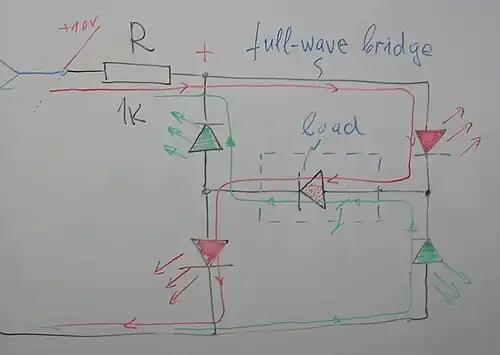 +10V
R
+
full-wave bridge
1K
load